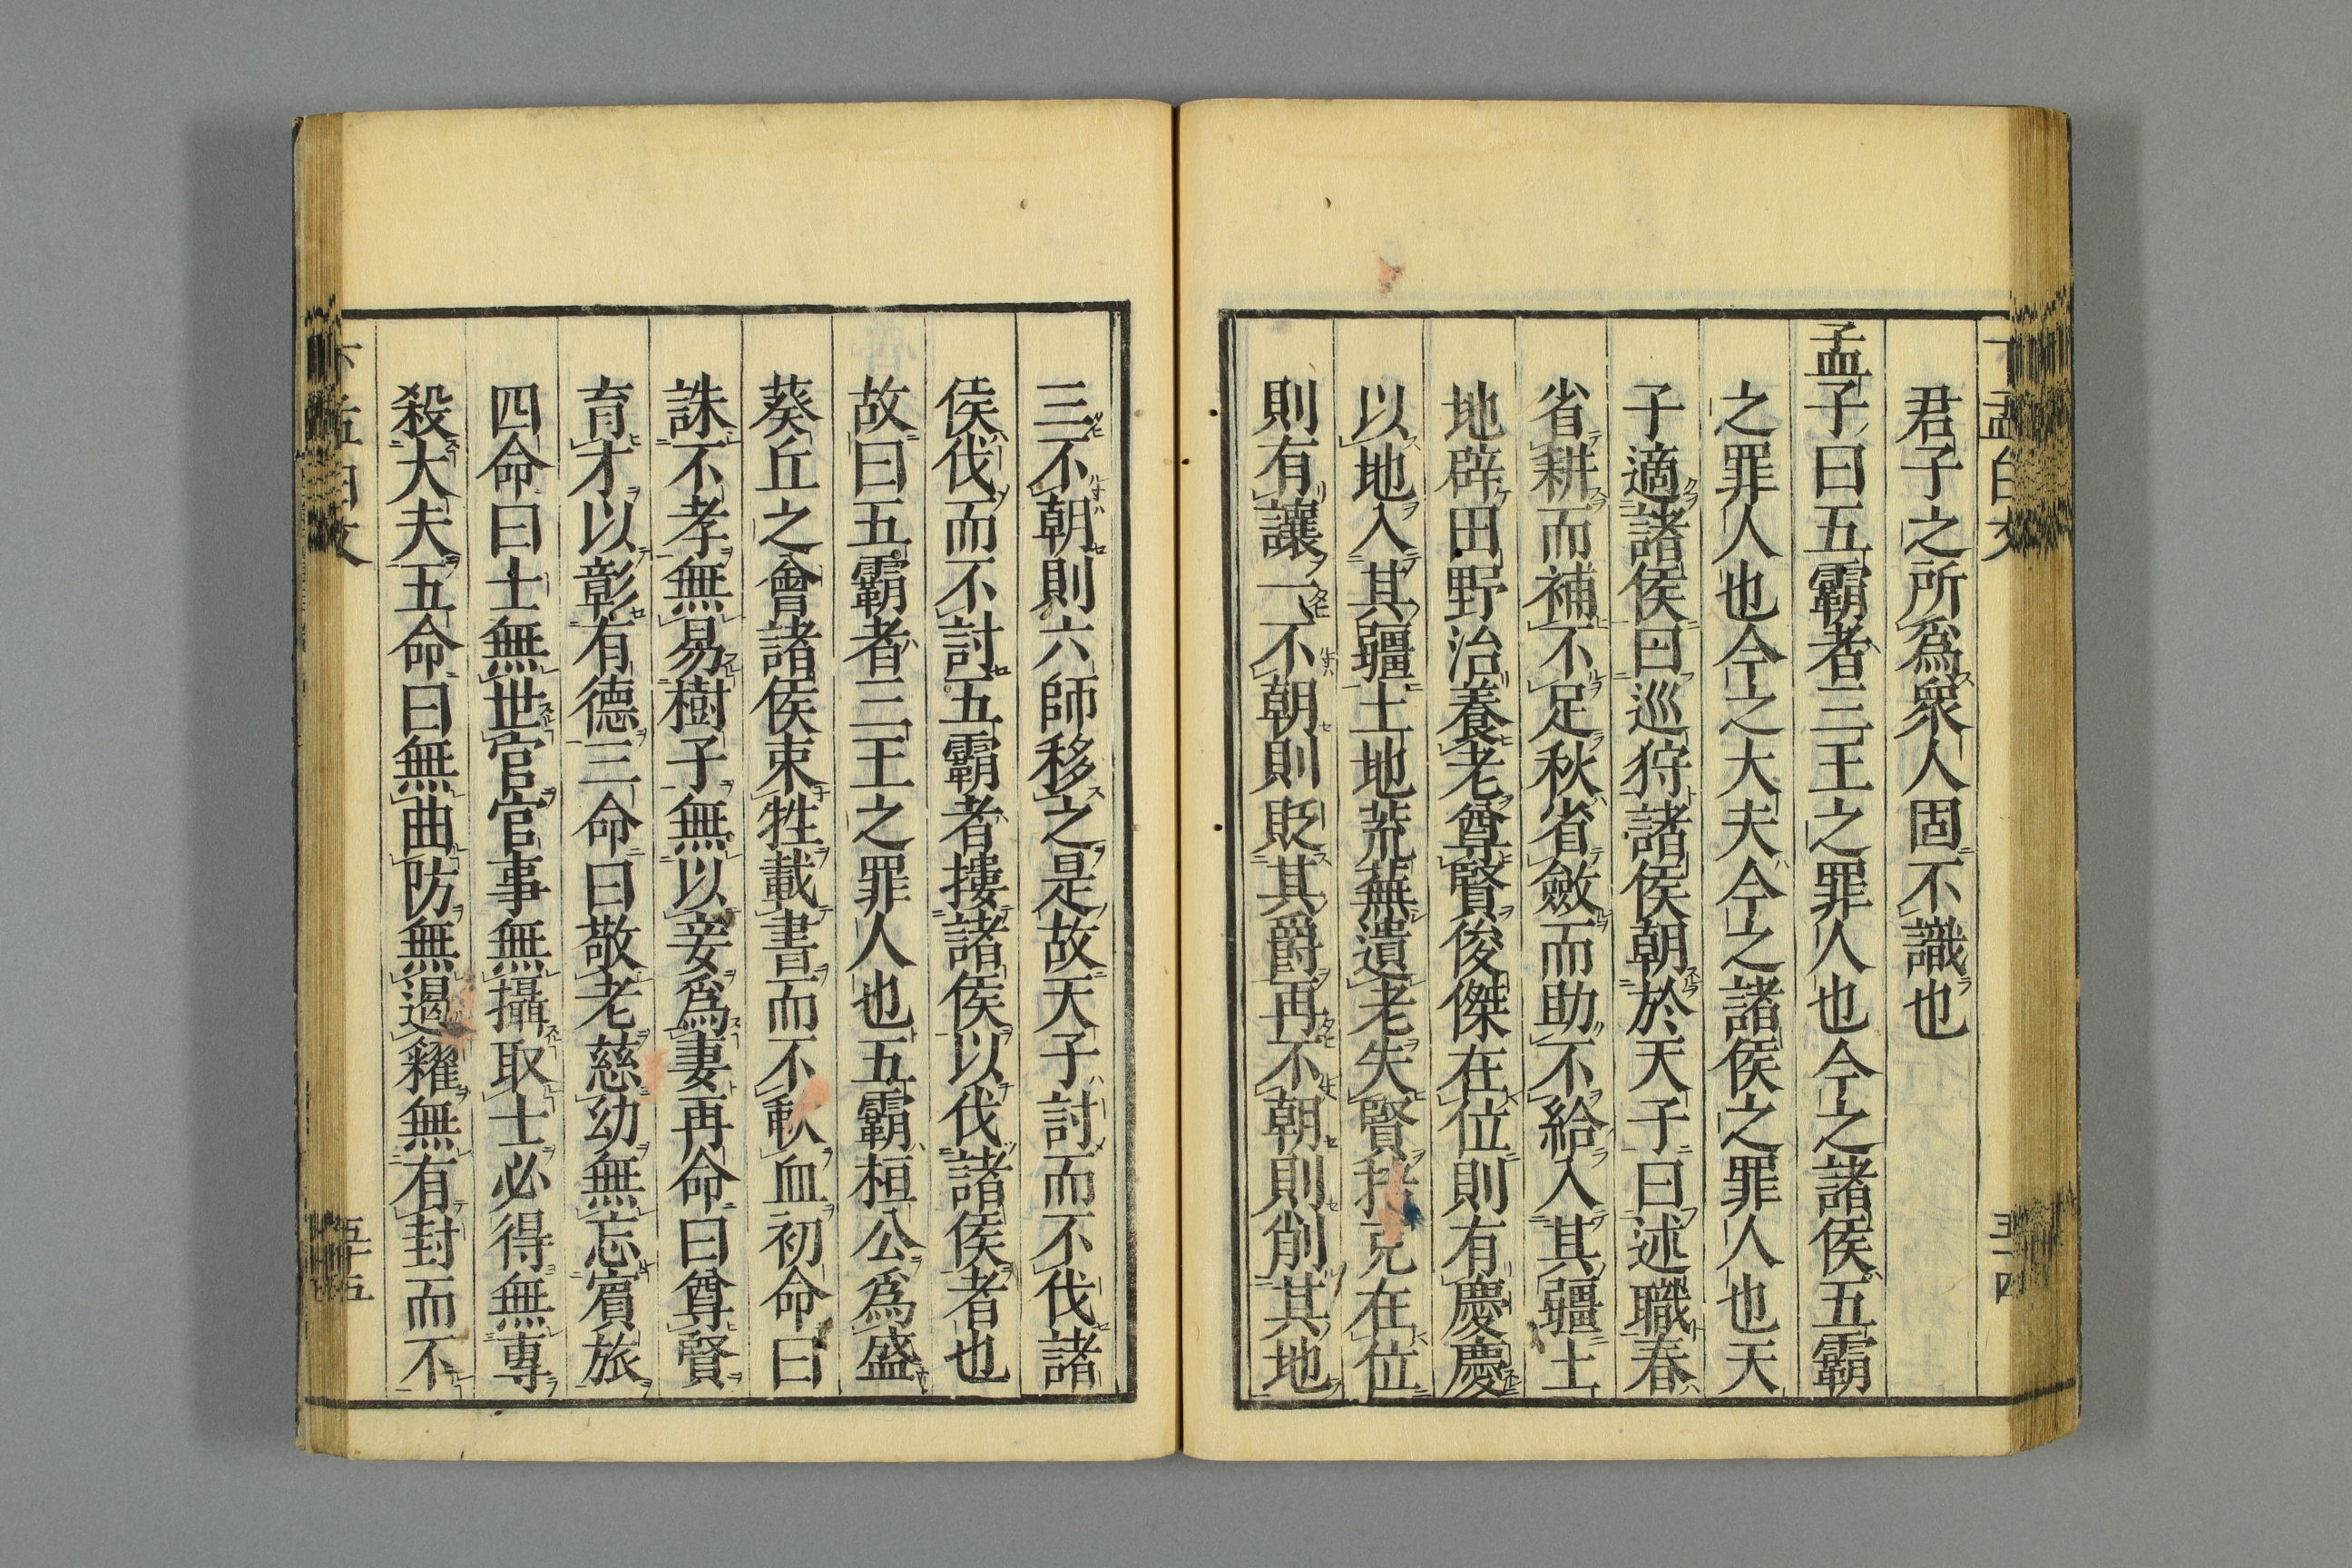 君子之所爲衆人固不識也
孟子曰五霸者三王之罪人也今之諸侯五霸
之罪人也今之大夫今之諸侯之罪人也天
子適諸侯曰巡狩諸侯朝於天子曰述職春
省耕而補不足秋省斂而助不給入其疆土
地辟田野治養老尊賢俊傑在位則有慶慶
以地入其疆土地荒蕪遺老失賢掊克在位
則有讓一不朝則貶其爵再不朝則削其地
三不朝則六師移之是故天子討而不伐諸
侯伐而不討五霸者摟諸侯以伐諸侯者也
故曰五霸者三王之罪人也五霸桓公爲盛
葵丘之會諸侯束牲載書而不歃血初命曰
誅不孝無易樹子無以妾爲妻再命曰尊賢
育才以彰有德三命曰敬老慈幼無忘賓旅
四命曰士無世官官事無攝取士必得無專
殺大夫五命曰無曲防無遏糴無有封而不